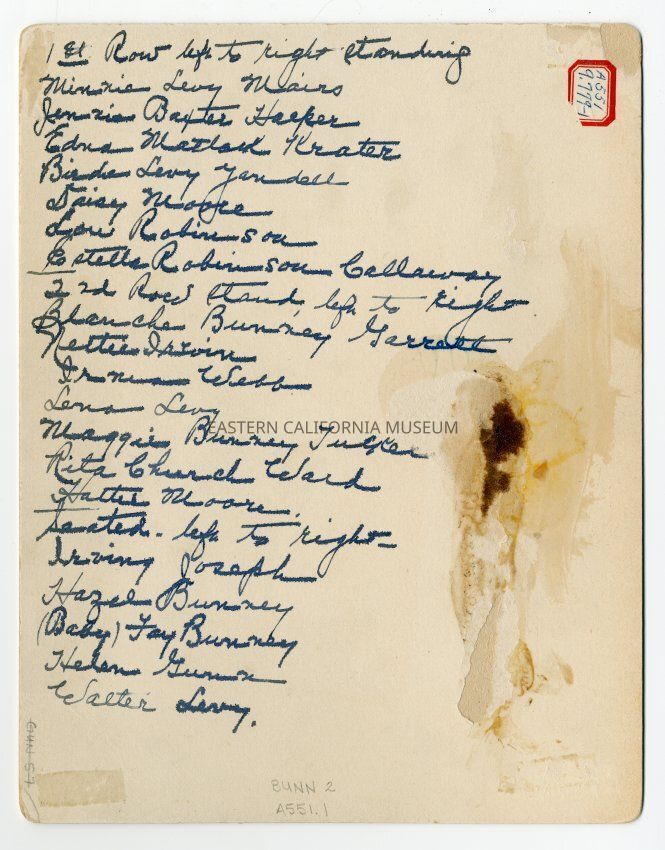 1st Row left to right standing
Minnie Levy Mairs
Jennie Baxter Harper
Edna Matlock Krater
Birdie Levy Yandell
Daisy Moore
Lou Robinson
Estella Robinson Callaway
2nd Row stand, left to right
Blanche Bunney Garrett
Nettie Irvin
Webb
Lena Levy
EASTERN CALIFORNIA MUSEUM
Maggie Bunney Tucker
Rita Church Ward
Hattie Moore.
Seated - left to right -
Irving Joseph
Hazel Bunney
(Baby) Fay Bunney
Helen Gunn
Walter Levy.
BUNN 2
A551.1
A551